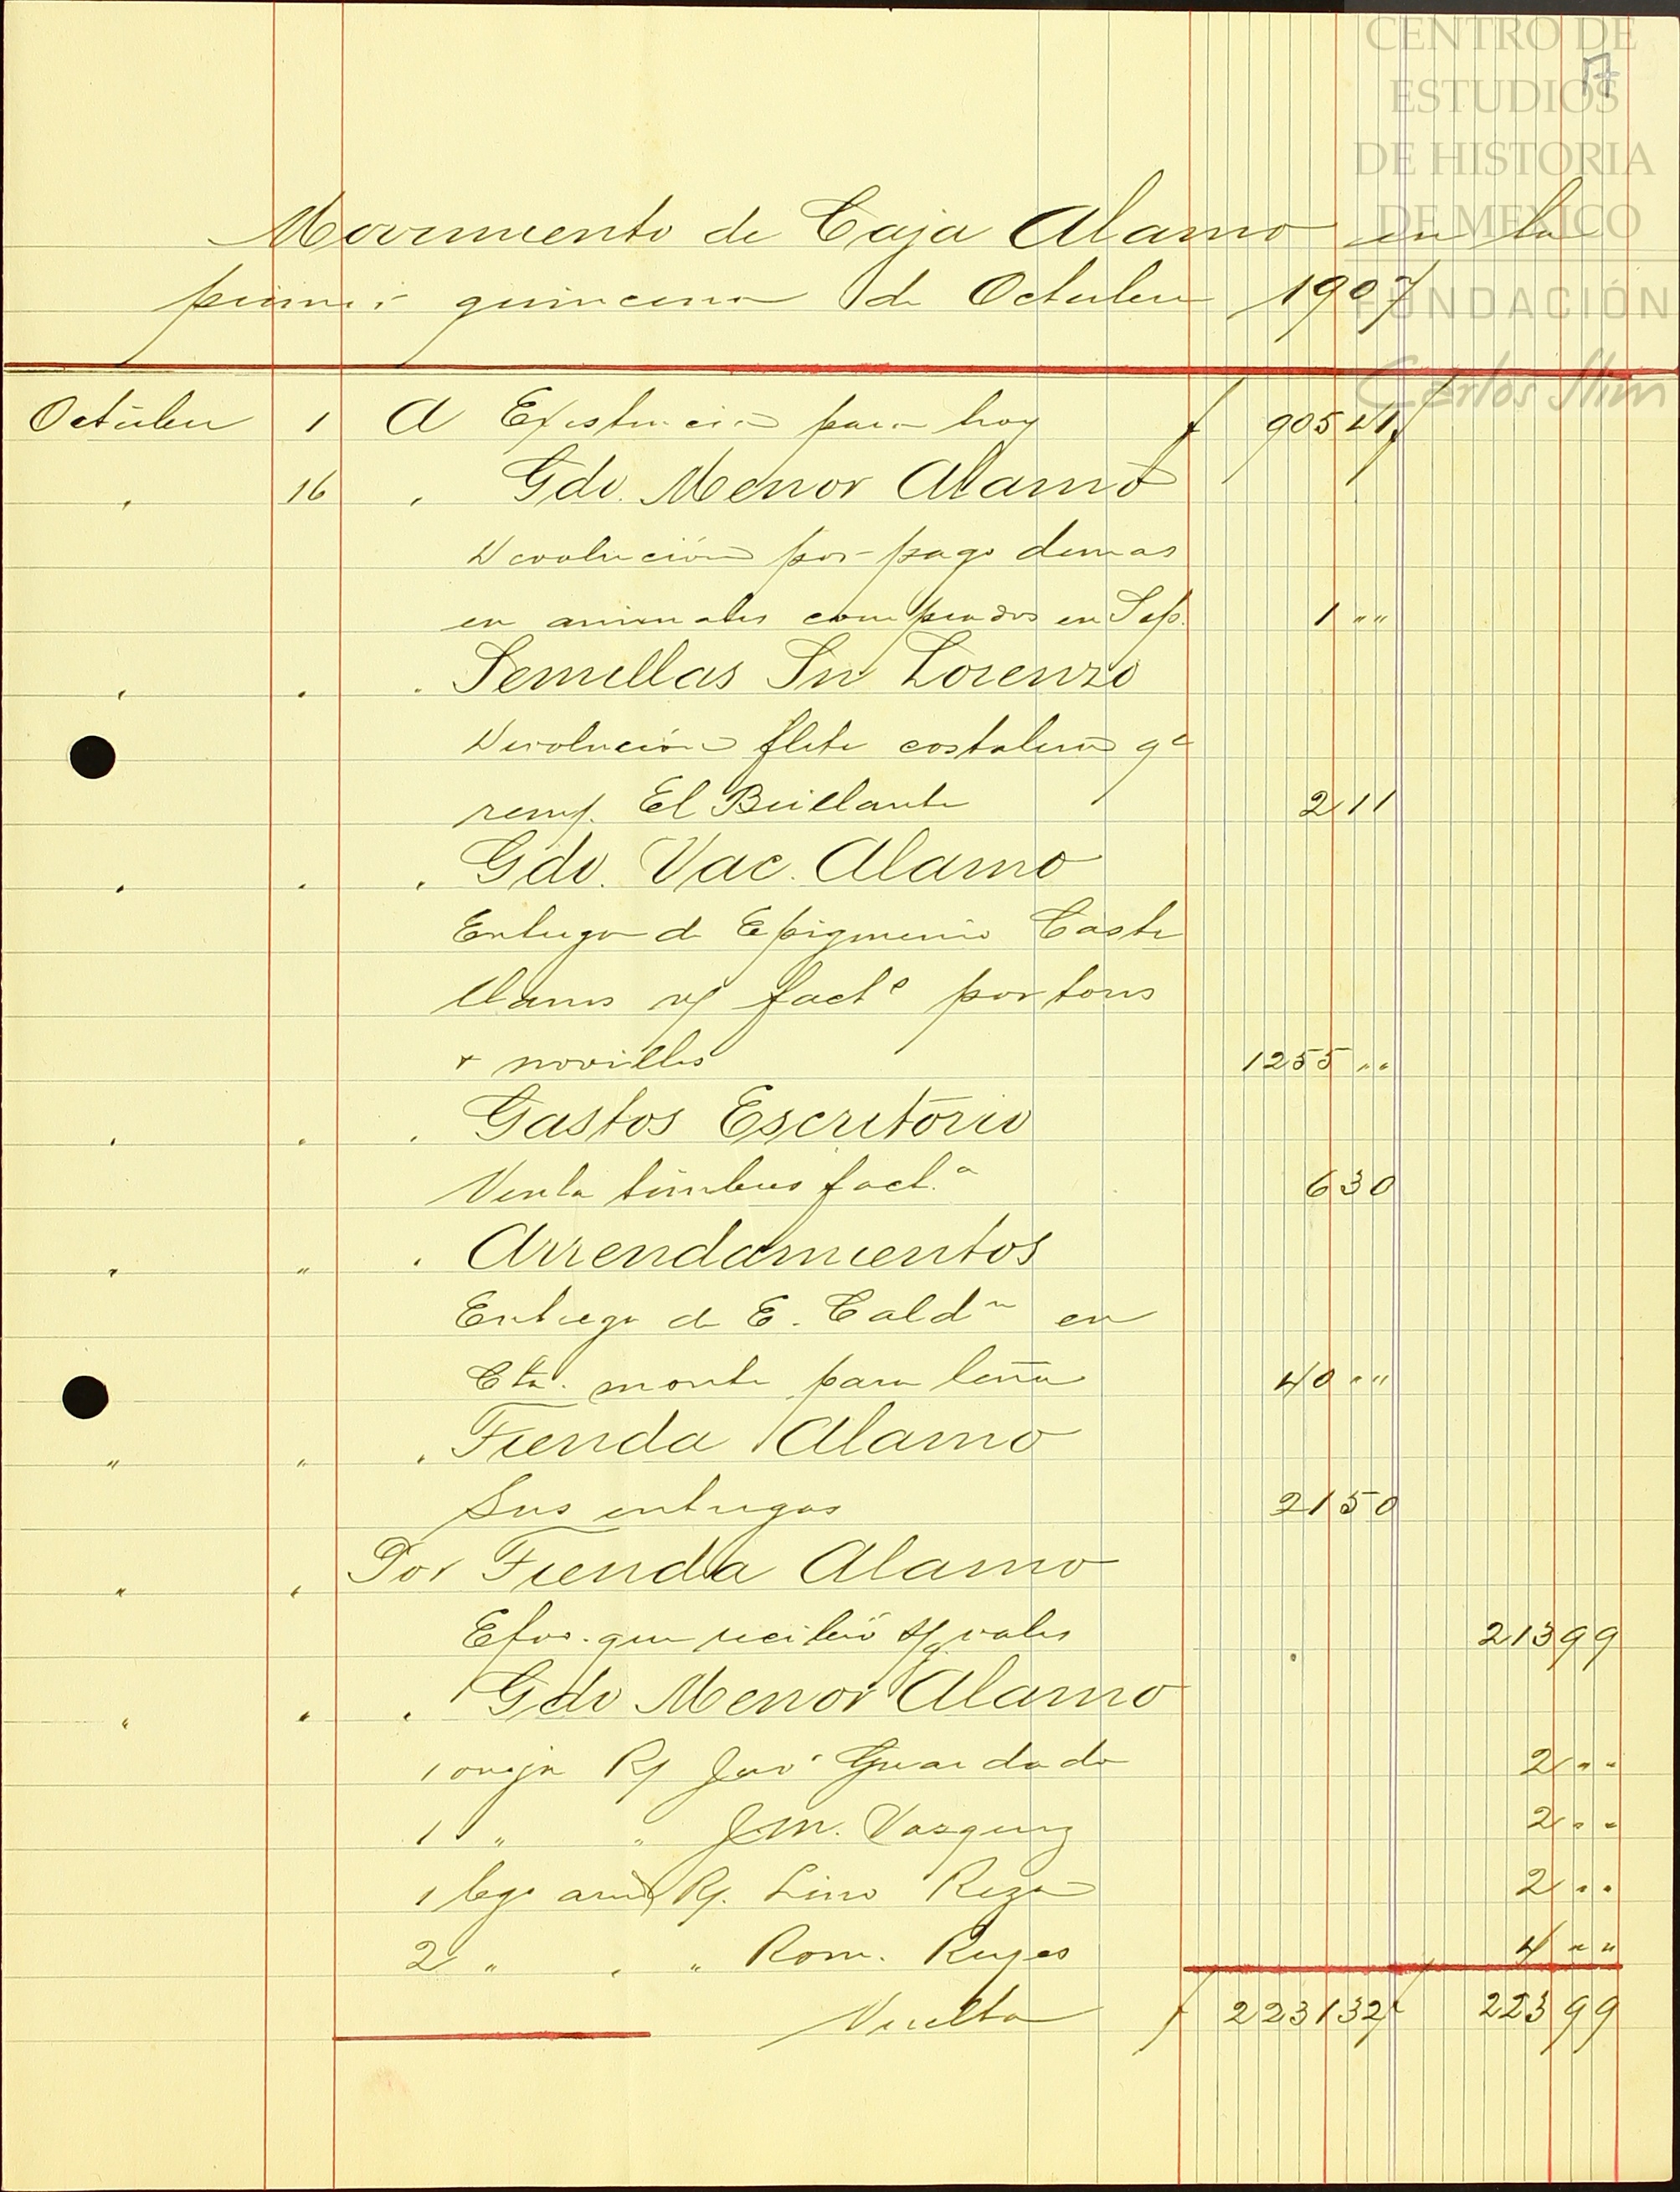 CENTRO DE
ESTUDIOS
DE HISTORIA
DE MEXICO
FUNDACIÓN
Carlos Slim
Movimiento de Caja Alamo en la
primera quincena de Octubre 1907
Octubre 1 A Existencia para hoy $ 905 41
" 16 " Gdo. Menor Alamo
Devolución por pago demas
en animales comprados en Sep. 1 " "
" " " Semillas Sn Lorenzo
Devolución flete costalera qe
rem/. El Brillante 2 11
" " " Gdo. Vac. Alamo
Entrega de Epigmenio Caste
llanos s/ facta por toros
+ novillos 1255 " "
" " " Gastos Escritorio
Venta timbres fact.a 6 30
" " " Arrendamientos
Entrega de E. Caldn en
Cta. monte para leña 40 " "
" " " Tienda Alamo
Sus entregas 21 50
" " Por Tienda Alamo
Efos. que recibió s/ vales 213 99
" " " Gdo Menor Alamo
1 oveja R/ José Guardado 2 " "
1 " " J.M. Vazquez 2 " "
1 R/. Lino Reza 2 " "
2 " " " Rom. Reyes 4 " "
Vuelta $ 2231 32 223 99